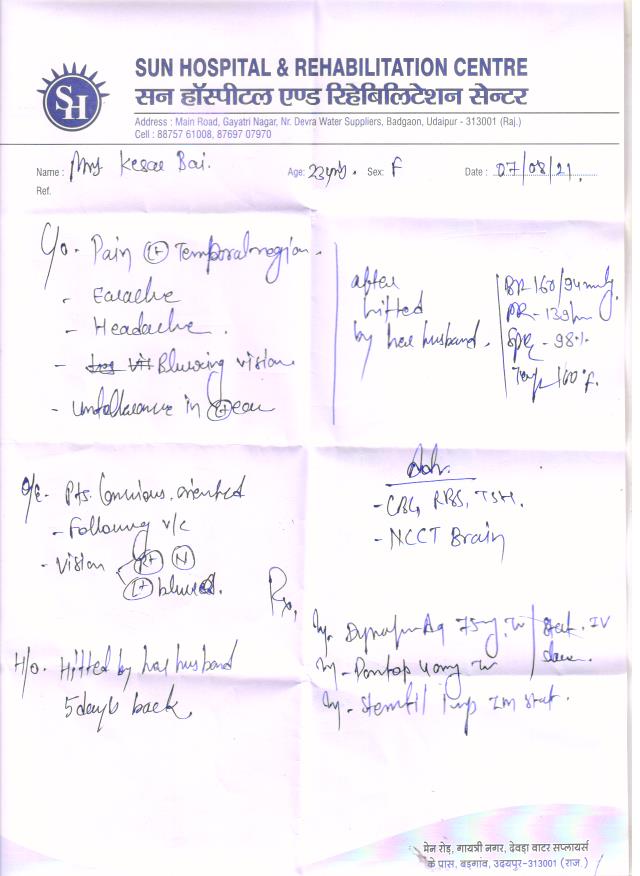 SUN HOSPITAL & REHABILITATION CENTRE
सन हॉस्पीटल एण्ड रिहेबिलिटेशन सेन्टर
Address : Main Road, Gayatri Nagar, Nr. Devra Water Suppliers, Badgaon, Udaipur - 313001 (Raj.)
Cell : 88757 61008, 87697 07970
SH
Name : Mrs Kesar Bai. Age: 23 yrs. Sex: F Date : 07/08/21.
Ref.
C/o - Pain Lt Temporal region.
- Earache
- Headache.
- Blurring vision
- in Lt ear
after
hitted
by her husband.
BP - 160/94 mmHg.
PR - 139/m
SPO2 - 98%
Temp 100°F.
O/E - Pts. Conscious, oriented
- Following v/c
- Vision Rt N
Lt blurred.
H/o. Hitted by her husband
5 days back.
Adv.
- CBC, RBS, TSH.
- NCCT Brain
Rx,
Inj. Dynapar Aq 75mg IV stat. IV
Inj - Pantop 40mg IV
Inj - Stemetil 1amp IM stat.
मेन रोड़, गायत्री नगर, देवड़ा वाटर सप्लायर्स
के पास, बड़गांव, उदयपुर-313001 (राज.)